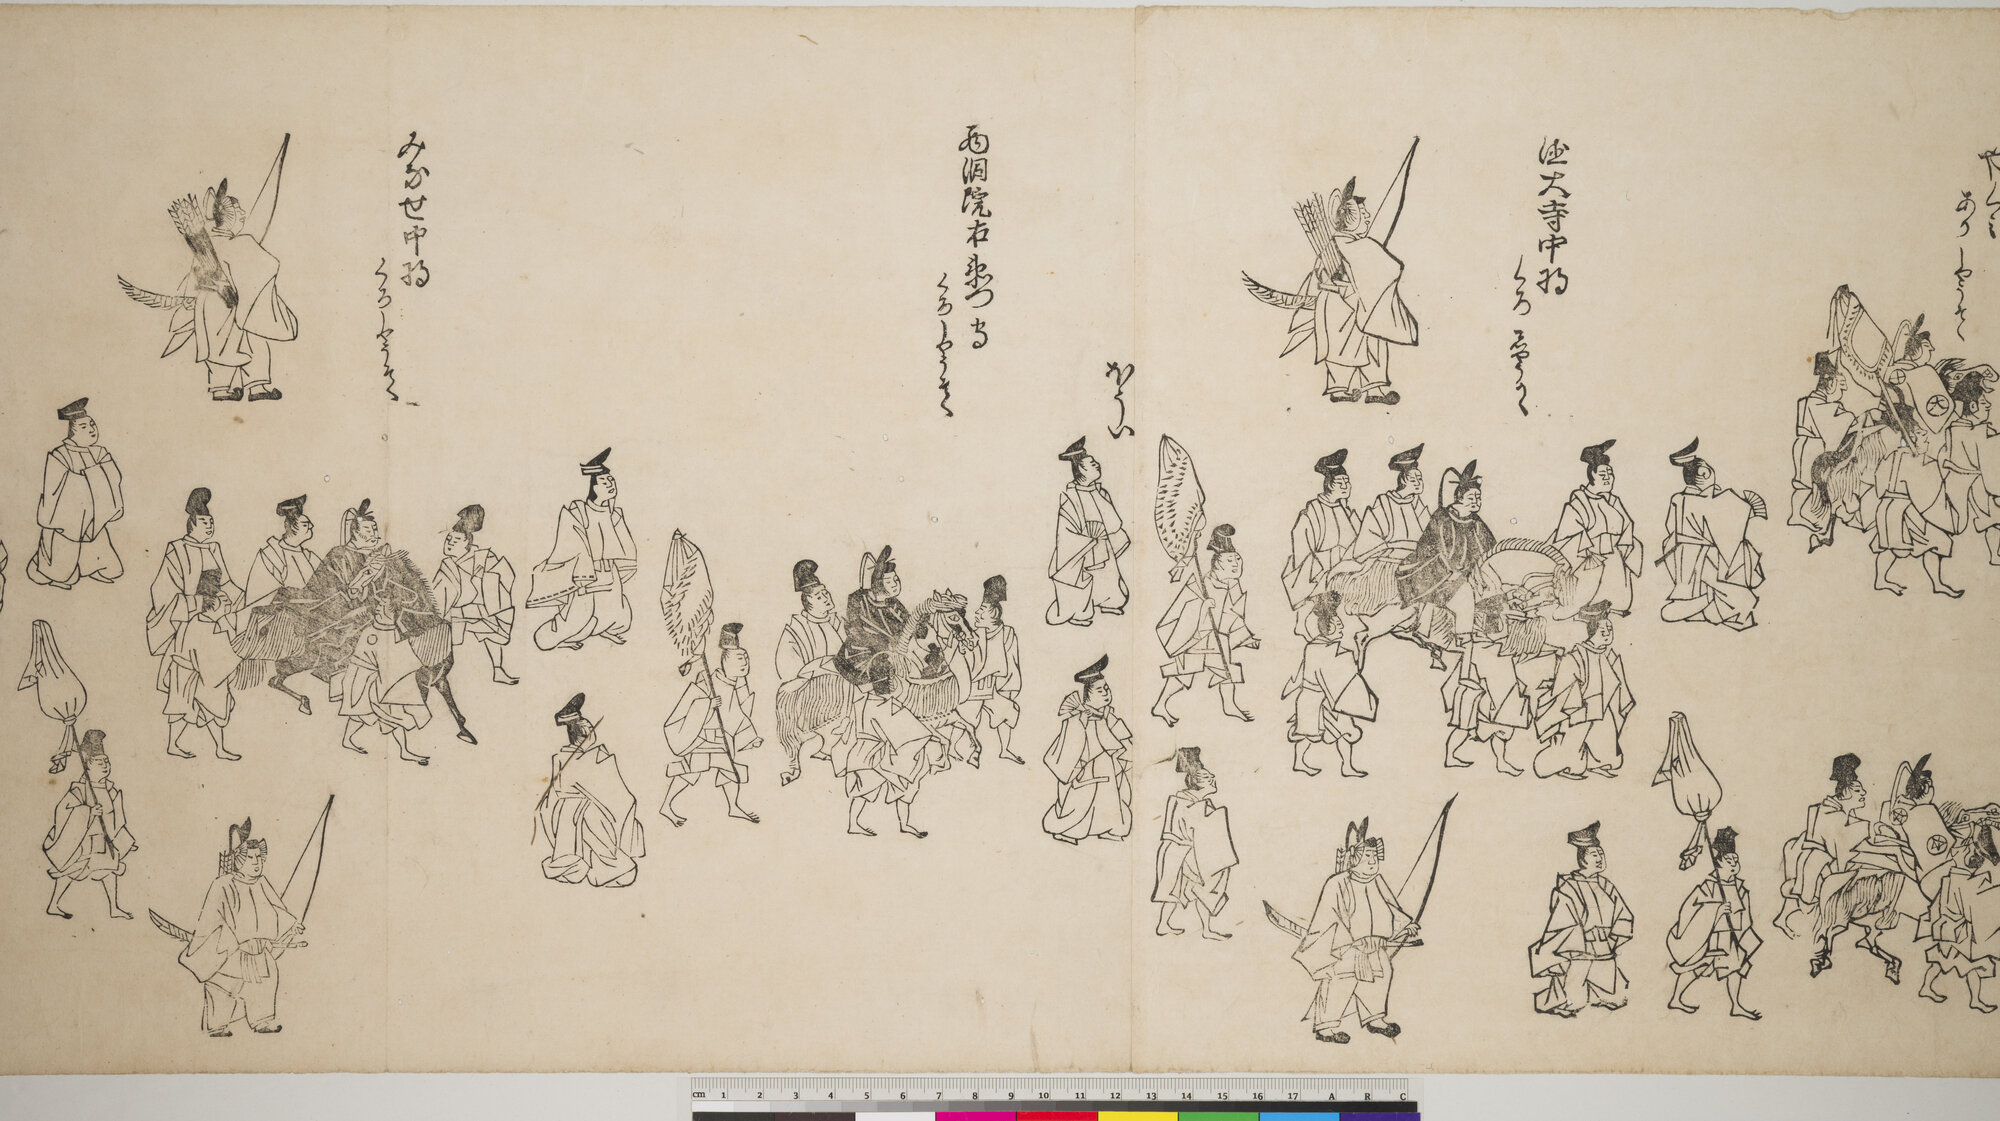 あかしやうそく
徳大寺中将
くろしやうそく
ほうい
西洞院右衛門守
くろしやうそく
みなせ中将
くろしやうそく
cm 1 2 3 4 5 6 7 8 9 10 11 12 13 14 15 16 17 A R C